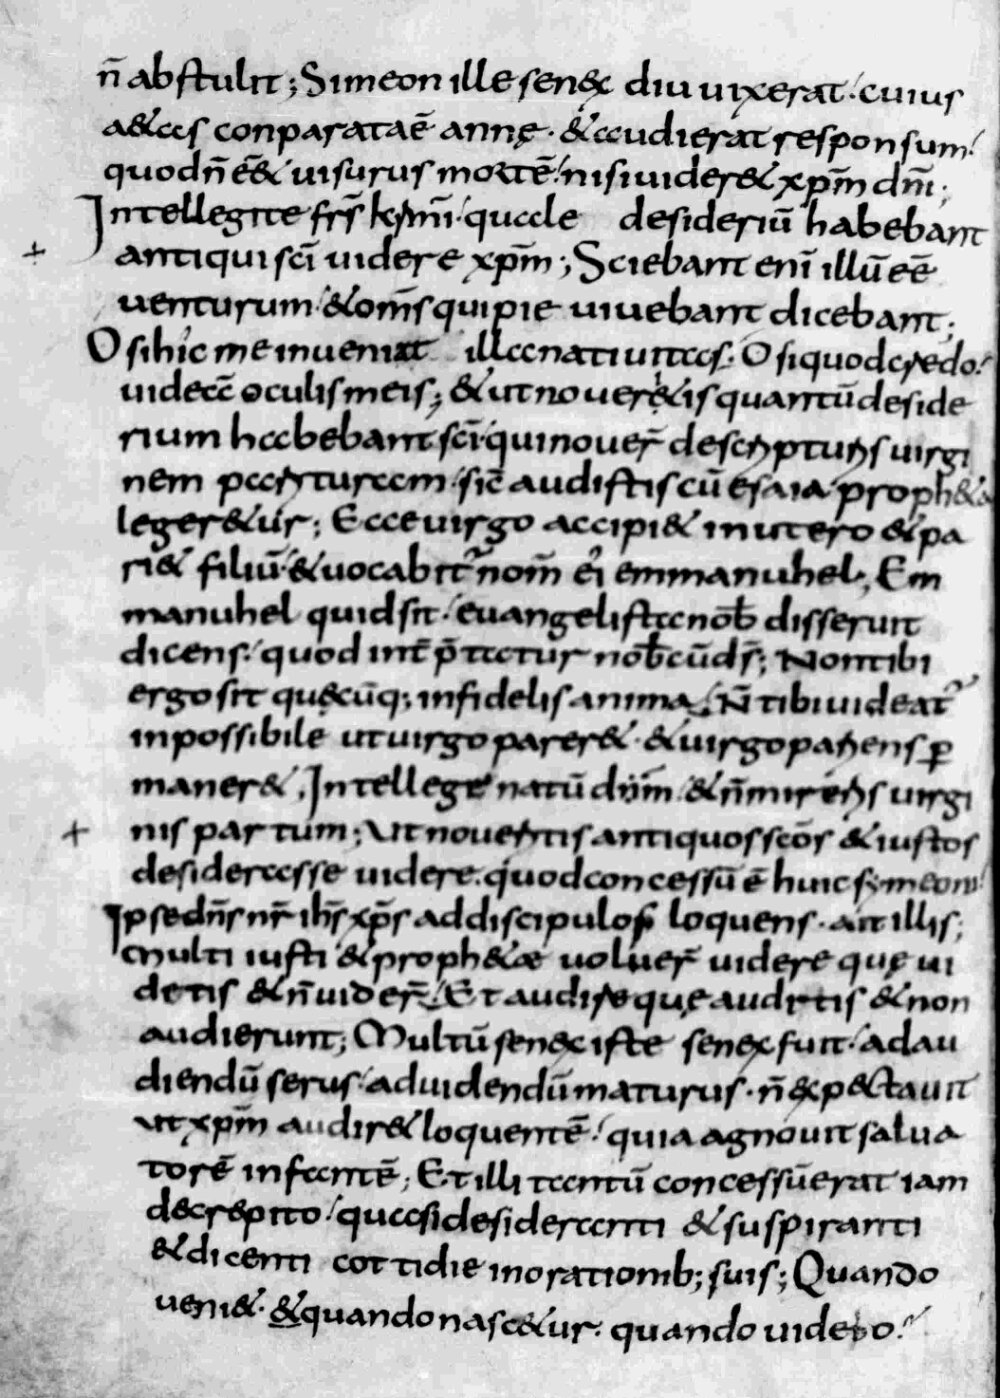 n̄ abstulit; Simeon ille sen&x diu uixerat. cuius
a&as conparata ē annę. &audierat responsum.
quod n̄ ēē& uisurus mortē. nisi uider& xp̄m dn̄i;
Intellegite frs̄ kmī. quale desideriū habebant
antiqui scī uidere xp̄m; Sciebant enī illū eē
uenturum. &om̄s qui pie uiuebant dicebant;
O si hic me inueniat illa natiuitas. O si quod credo.
uideā oculis meis; &ut nouer&is quantū deside
rium habebant scī. qui nouer̄ descripturis uirgi
nem parituram. sic̄ audistis cū esaia proph&a
leger&ur; Ecce uirgo accipi& in utero & pa
ri& filiū. &uocabit᷑ nom̄ ei emmanuhel; Em
manuhel quid sit. euangelista nob̄ disseruit
dicens. quod int̄p̄tatur nob̄ cū ds̄; Non tibi
ergo sit quęcūq; infidelis anima. N̄ tibi uideat᷑
inpossibile ut uirgo parer&. &uirgo pariens ꝑ
maner&. Intellege natū dn̄m. &n̄ mireris uirgi
nis partum; Ut noueritis antiquos scōs & iustos
desiderasse uidere. quod concessū ē huic symeoni.
Ipse dn̄s nr̄ ihs̄ xp̄s ad discipulos loquens. ait illis;
Multi iusti &proph&æ uoluer̄ uidere quę ui
detis &n̄ uider̄. Et audire quę auditis & non
audierunt; Multū sen&x iste sen&x fuit. ad au
diendū serus. ad uidendū maturus. n̄ &xpectauit
ut xp̄m audir& loquentē. quia agnouit salua
torē infantē; Et illi tantū concessū erat iam
decrepito. quasi desideranti & suspiranti
&dicenti cottidie in orationib; suis; Quando
ueni&. &quando nasc&ur. quando uidebo.